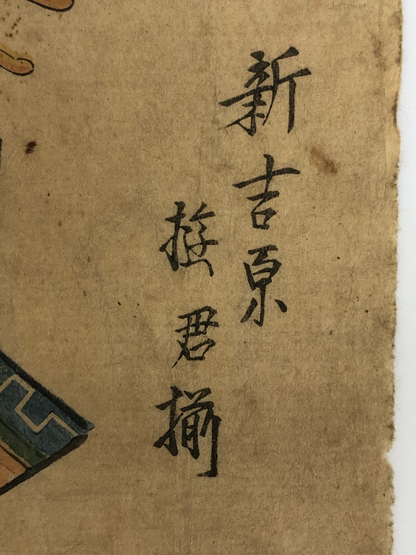 新吉原
遊君揃